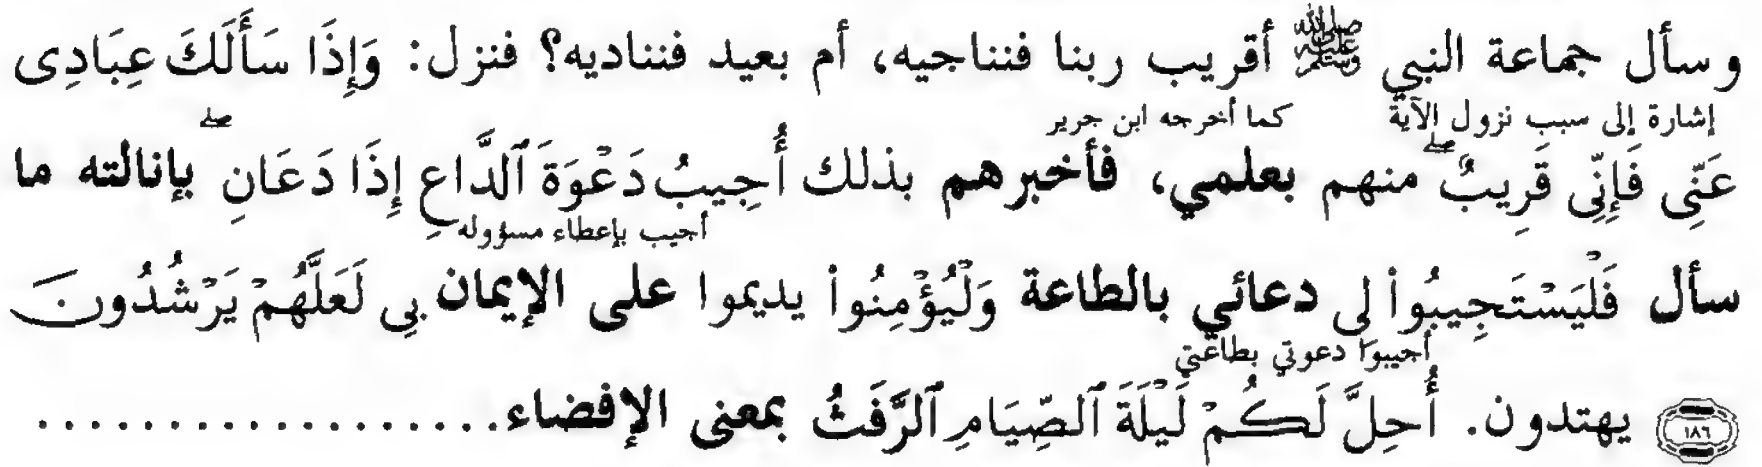 وسأل جماعة النبي ﷺ أقريب ربنا فنناجيه، أم بعيد فنناديه؟ فنزل: وَإِذَا سَأَلَكَ عِبَادِى
إشارة إلى سبب نزول الآية كما أخرجه ابن جرير
عَنِّى فَإِنِّى قَرِيبٌۖ منهم بعلمي، فأخبرهم بذلك أُجِيبُ دَعْوَةَ ٱلدَّاعِ إِذَا دَعَانِۖ بإنالته ما
أجيب بإعطاء مسؤوله
سأل فَلْيَسْتَجِيبُوا۟ لِى دعائي بالطاعة وَلْيُؤْمِنُوا۟ يديموا على الإيمان بِى لَعَلَّهُمْ يَرْشُدُونَ
أجيبوا دعوتي بطاعتي
١٨٦ يهتدون. أُحِلَّ لَكُمْ لَيْلَةَ ٱلصِّيَامِ ٱلرَّفَثُ بمعنى الإفضاء..................